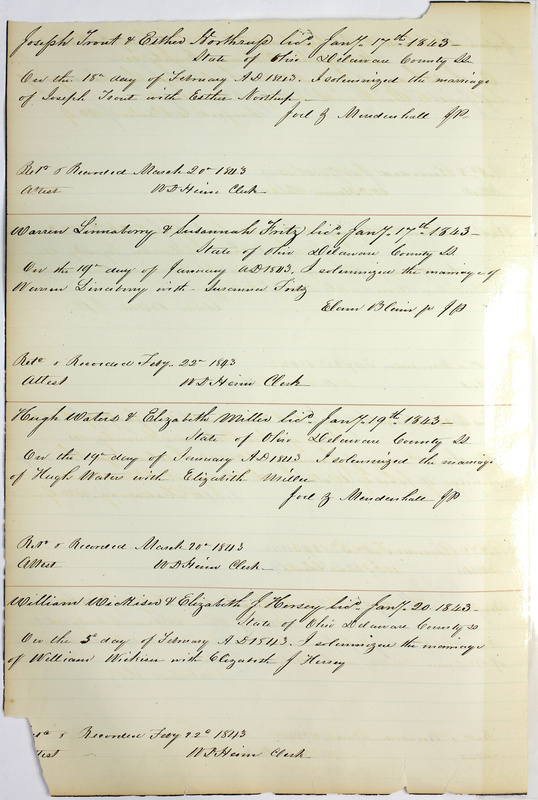 Joseph Trout & Esther Northrup licd Jany. 17th 1843 —
State of Ohio Delaware County Ss
On the 18th day of February AD 1843. I solemnized the marriage
of Joseph Trout with Esther Northup —
Joel Z Mendenhall JP
Retd & Recorded March 20th 1843
Attest W D Heim Clerk
Warren Linnaberry & Susannah Fritz licd Jany. 17th 1843 —
State of Ohio Delaware County Ss.
On the 19th day of January AD 1843. I solemnized the marriage of
Warren Linaberry with Susanna Fritz
Blain jr JP
Retd & Recorded Feby. 22nd 1843
Attest W D Heim Clerk
Hugh Waters & Elizabeth Miller licd Jany. 19th 1843 —
State of Ohio Delaware County Ss
On the 19th day of January AD 1843 I solemnized the marriage
of Hugh Water with Elizabeth Miller
Joel Z Mendenhall JP
Retd & Recorded March 20th 1843
Attest W D Heim Clerk
William Wickiser & Elizabeth J. Hersey licd Jany. 20. 1843 —
State of Ohio Delaware County ss
On the 3d day of February AD 1843. I solemnized the marriage
of William Wickiser with Elizabeth J Hersey
& Recorded Feby 22d 1843
W D Heim Clerk